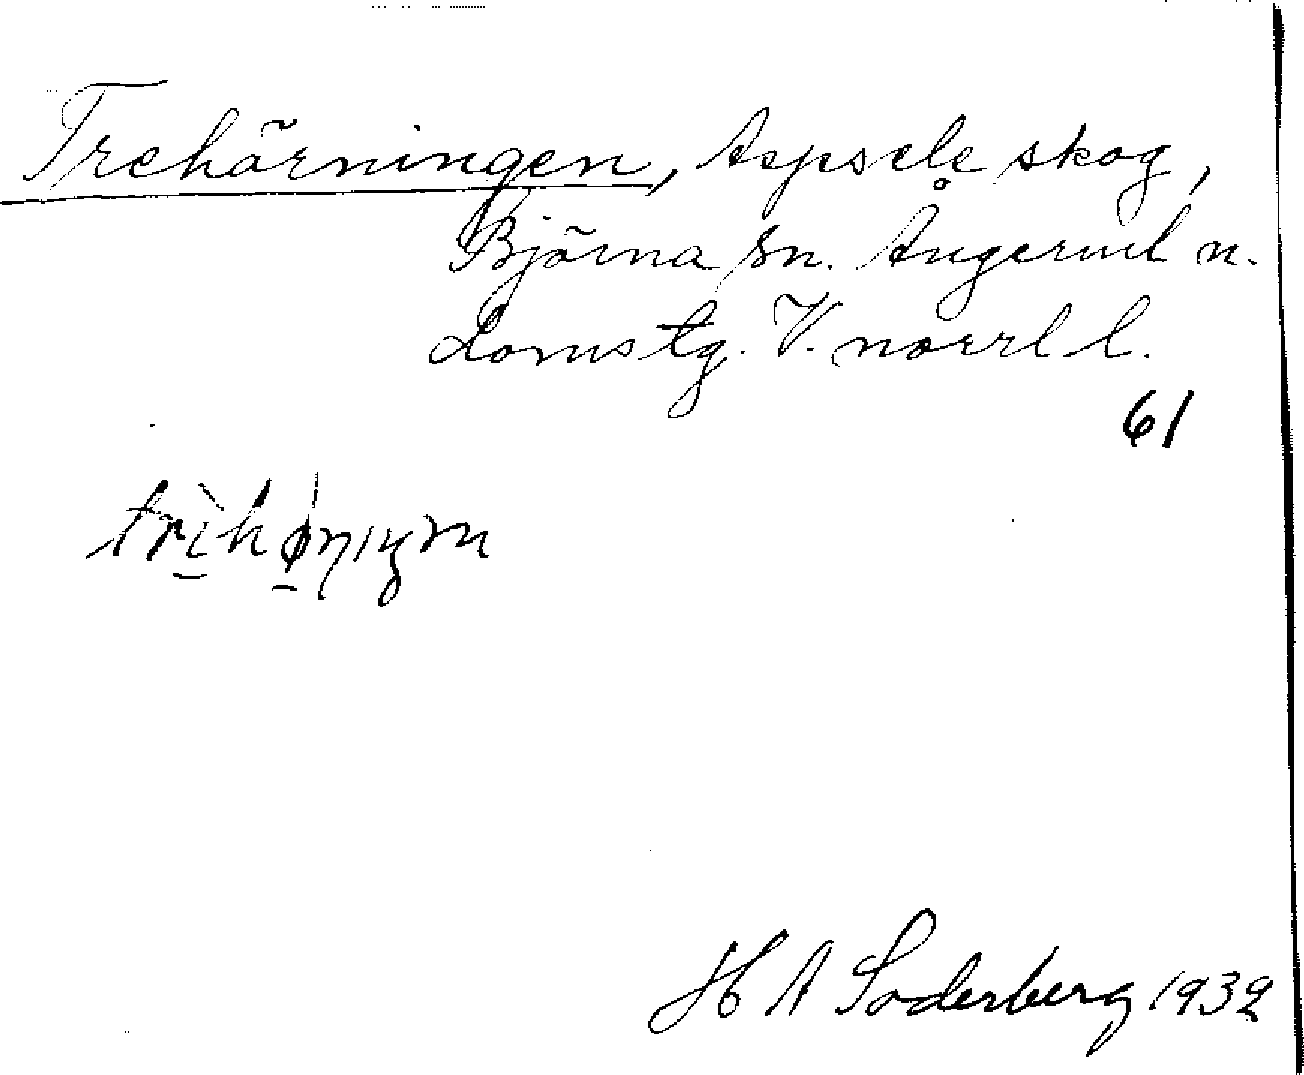 Trehörningen, Aspsele skog,
Björna sn. Ångerml n.
domstg. V. norrl l.
61
H A Soderberg 1932